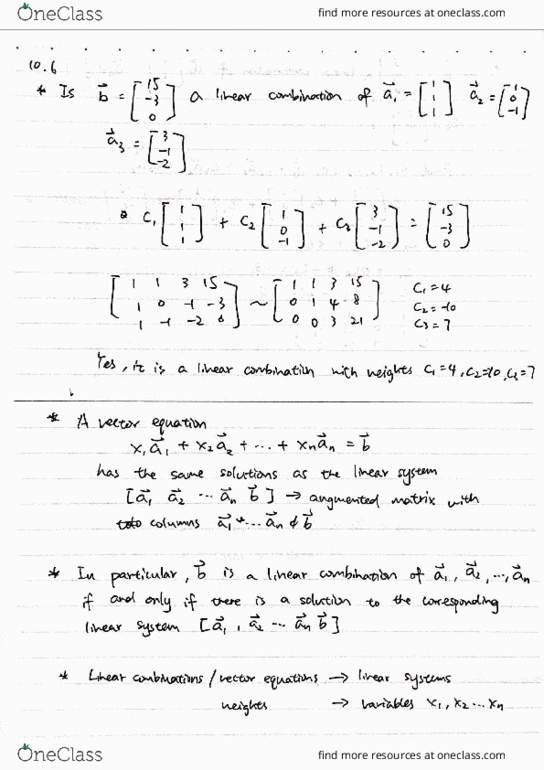 OneClass find more resources at oneclass.com
10.6
* Is b⃗ = [15 -3 0] a linear combination of a⃗₁ = [1 1 1] a⃗₂ = [1 0 -1]
a⃗₃ = [3 -1 -2]
C₁ [1 1 1] + C₂ [1 0 -1] + C₃ [3 -1 -2] = [15 -3 0]
[1 1 3 15 ~ [1 1 3 15 C₁=4
1 0 -1 -3 0 1 4 8 C₂=-10
1 -1 -2 0] 0 0 3 21] C₃=7
Yes, it is a linear combination with weights C₁=4, C₂=-10, C₃=7
* A vector equation
x₁a⃗₁ + x₂a⃗₂ + ... + xₙa⃗ₙ = b⃗
has the same solutions as the linear system
[a⃗₁ a⃗₂ ... a⃗ₙ b⃗] → augmented matrix with
columns a⃗₁ ... a⃗ₙ & b⃗
* In particular, b⃗ is a linear combination of a⃗₁, a⃗₂, ..., a⃗ₙ
if and only if there is a solution to the corresponding
linear system [a⃗₁, a⃗₂ ... a⃗ₙ b⃗]
* Linear combinations/vector equations → linear systems
weights → variables x₁, x₂ ... xₙ
OneClass find more resources at oneclass.com